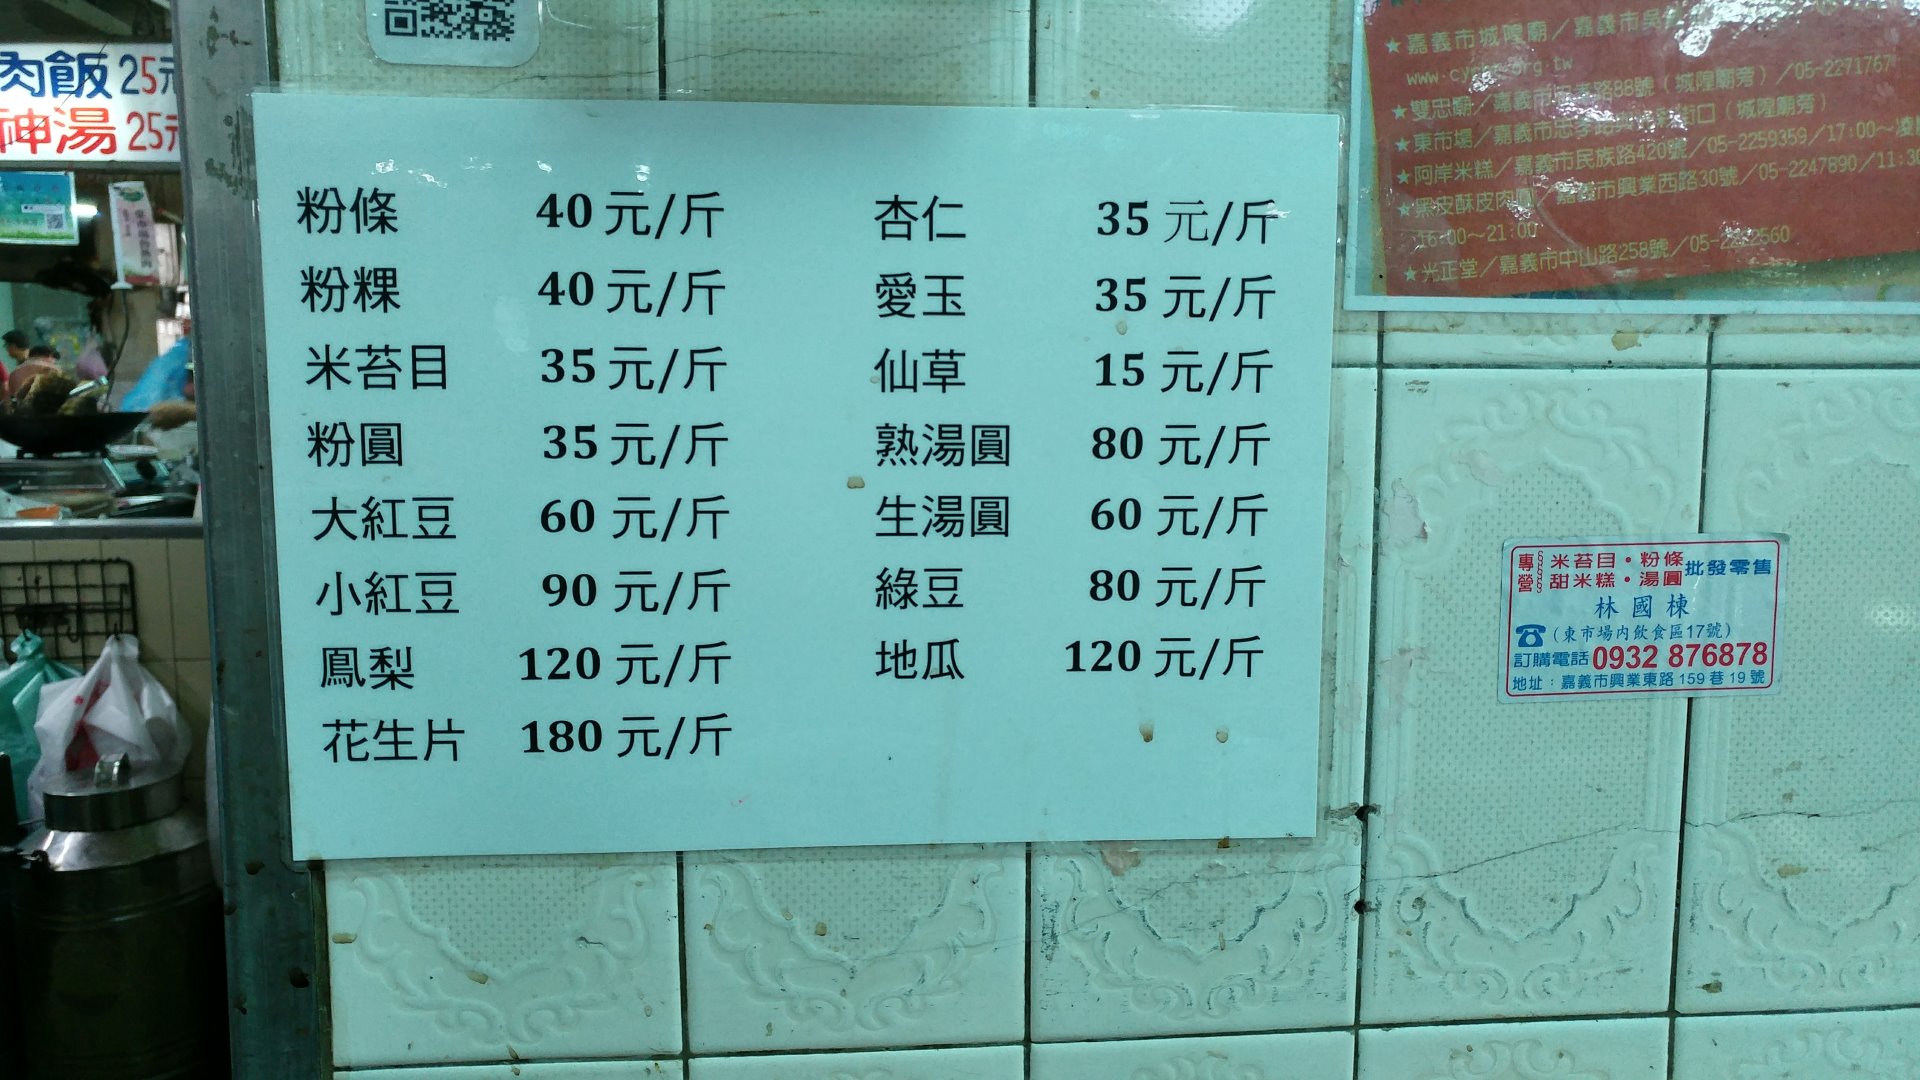 肉飯 25元
神湯 25元
粉條 40 元/斤
粉粿 40 元/斤
米苔目 35 元/斤
粉圓 35 元/斤
大紅豆 60 元/斤
小紅豆 90 元/斤
鳳梨 120 元/斤
花生片 180 元/斤
杏仁 35 元/斤
愛玉 35 元/斤
仙草 15 元/斤
熟湯圓 80 元/斤
生湯圓 60 元/斤
綠豆 80 元/斤
地瓜 120 元/斤
★嘉義市城隍廟／嘉義市吳
www.cy
org.tw
★雙忠廟／嘉義市 路88號（城隍廟旁）／05-2271767
★東市場／嘉義市忠孝路 街口（城隍廟旁）
★阿岸米糕／嘉義市民族路420號／05-2259359／17:00～凌
★黑皮酥皮肉圓／嘉義市興業西路30號／05-2247890／11:30
16:00～21:00
★光正堂／嘉義市中山路258號／05- 2560
專營 米苔目・粉條
甜米糕・湯圓 批發零售
林國棟
☎（東市場內飲食區17號）
訂購電話 0932 876878
地址：嘉義市興業東路159巷19號